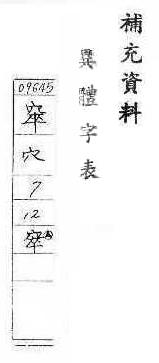 補充資料
異體字表
09645
窣
穴
7
12